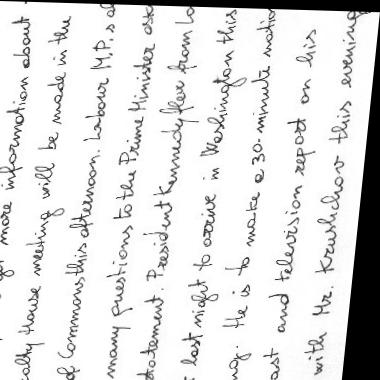 more information about
House meeting will be made in the
of Commons this afternoon. Labour M.P.s
many questions to the Prime Minister
statement. President Kennedy flew from
last night to arrive in Washington this
He is to make a 30-minute
and television report on his
with Mr. Krushchov this evening